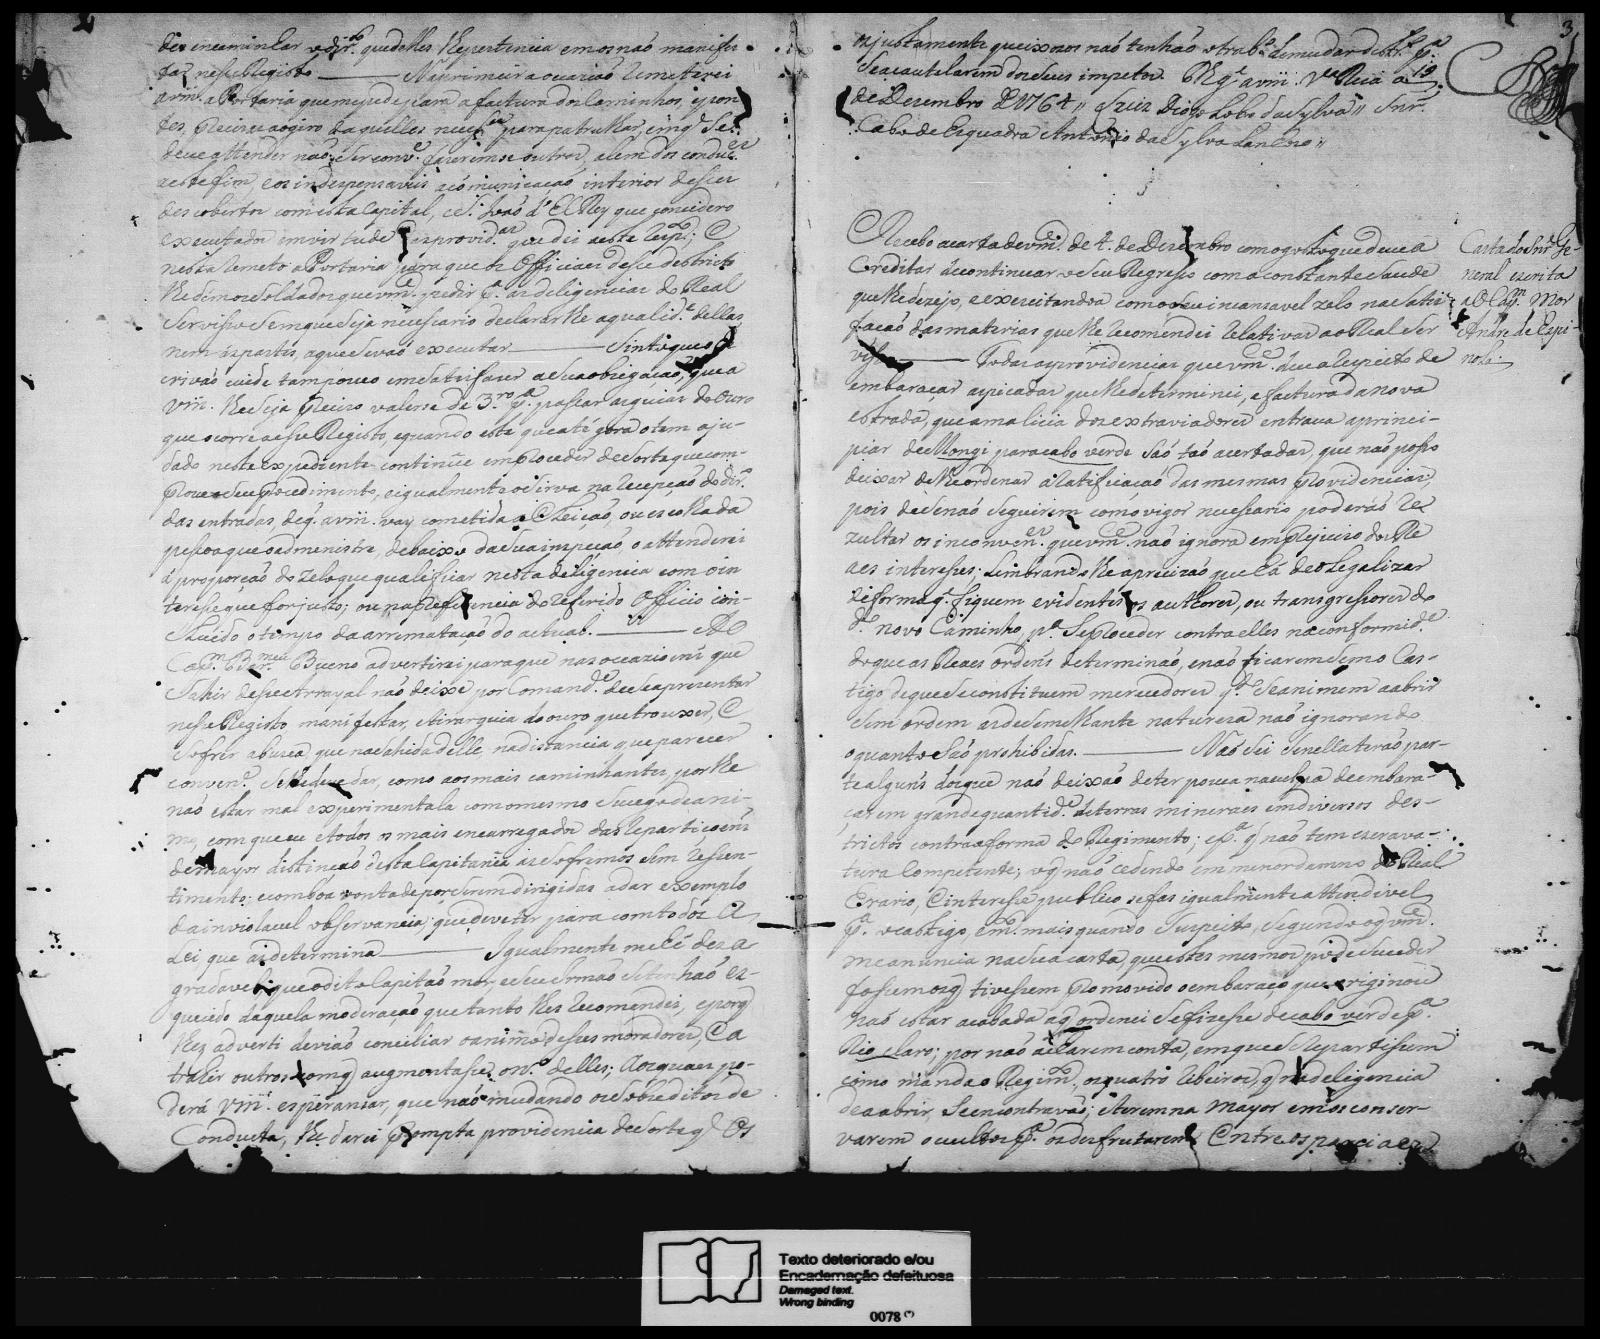 2
dis encaminhar odr.º que delles lhe pertencia em os não manifes-
tar nesse Registo ——— Na primeira occazião remeterei
a vm. a Portaria que me pede para a factura dos Caminhos, e pon-
tes, precizas ao giro daquelles para patrulhar, em q. se
deve attender não ser conv.e fazerem se outros, alem dos
a este fim, e os indespensaveis a cómunicação interior desses
descobertos com esta Capital, e S. João d'El Rey que considero
executados em virtude as provid.as que dei a este resp.to; E
nesta remeto a Portaria para que os Officiaes desse destricto
lhe dem os Soldados que vm.ce pedir p.a as deligencias do Real
Servisso sem que seja necessario declararlhe a qualid.e dellas
nem ás partes, a que se vão executar ——— Sinto que o Es-
crivão cuide tam pouco em satisfazer a sua obrigação, que a
vm. lhe seja precizo valerse de 3.ro p.a passar as guias do ouro
que ocorre a esse Registo, e quando este que até gora o tem aju-
dado neste expediente continúe em proceder de sorte que com-
prove o seu procedimento, e igualmente o sirva na recepção do dir.º
das entradas, de q. a vm. vay cometida a Eleição, ou escolha da
pessoa que o administre, debaixo da sua inspeção, o attenderei
á proporção do zelo que qualificar nesta deligencia com o in
teresse que for justo; ou na preferencia do referido Officio con-
cluido o tempo da arrematação do actual. ——— Ao
Cap.m B.meu Bueno advertirei para que nas occazioens que
Sahir desse Arrayal não deixe por Comand.e de se aprezentar
nesse Registo, manifestar, e tirar guia do ouro que trouxer, E
Sofrer a busca, que na sahida delle, na distancia que parecer
conven.e se lhe deve dar, como aos mais caminhantes, por lhe
não estar mal experimentala com o mesmo socego de ani-
mo, com que eu e todos os mais encarregados das repartiçoens
de mayor distinção desta Capitania as sofremos sem resen-
timento; e com boa vontade por serem dirigidas a dar exemplo
da inviolavel observancia, que deve ter para com todos a
Lei que as determina ——— Igualmente me he deza
gradavel que o dito Capitão mor, e seu Irmão se tenhão es-
quecido daquela moderação que tanto lhes recomendei, e porq
lhes adverti devião conciliar o animo desses moradores, e a
trahir outros com q augmentasse o n.º delles; Aos quaes po-
derá vm. esperansar, que não mudando os sobreditos de
Conducta, lhe darei prompta providencia de sorte q os
3
os justamente queixozos não tenhão o trab.º de mudar de destr.to p.a
Se acautelarem dos seus impetos. D.s g.e a vm. V.a Rica a 19
de Dezembro de 1764 // Luiz Diogo Lobo da Sylva // Snr.
Cabo de Esquadra Antonio da Sylva Lanhoso //
Recebo a carta de vm. de 4. de Dezembro com o gosto que deve a
Creditar a continuar o seu Regresso com a constante saude
que lhe dezejo, e exercitandoa com o seu incansavel zelo na satis-
façaõ das materias que lhe recomendei relativas ao Real Ser
viço ——— Todas as providencias que vm.ce deu a respeito de
embaraçar as picadas que lhe determinei, e a factura da nova
estrada, que a malicia dos extraviadores entrava a prinei-
piar de Mongi para cabo verde são tão acertadas, que não posso
deixar de lhe ordenar a ratificação das mesmas providencias,
pois de se não seguirem com o vigor necessario poderão re
zultar os inconven.es que vm.ce não ignora em prejuizo dos Re
aes interesses; Lembrando lhe a precizão que há de os legalizar
de forma q. fiquem evidentes os authores, ou transgressores do
d.º novo Caminho, p.a se proceder contra elles na conformid.e
do que as Reaes ordens determinão, e não ficarem sem o Cas-
tigo de que se constituem merecedores q.do se animem a abrir
sem ordem as de semelhante natureza não ignorando
o quanto são prohibidas. ——— Não sei se nella terão par-
te alguns dos que não deixão de ter pouca na culpa de embara-
çarem grande quantid.e de terras mineraes em diversos des-
trictos contra a forma do Regimento; e p.a q não tem escrava-
tura Competente; o q não cedendo em menor damno do Real
Erario, e interesse publico se fas igualmente attendivel
p.a o castigo, e m.to mais quando Suspeito, segundo o q vm.
me anuncia na sua carta, que estes mesmos pode suceder
fossem os q tivessem promovido o embaraço que originou
não estar acabada a q ordenei se fizesse de cabo verde p.a
Rio claro; por não acharem conta, em que se repartissem
como manda o Regim.to os quatro ribeiros, q na deligencia
de a abrir, se encontravão; e terem na mayor em os conser-
varem ocultos p.a os desfrutarem Entre os parciaes
Carta do Snr Ge-
neral escrita
ao Cap.m Mor
André de Espi-
nosa.
Texto deteriorado e/ou
Encadernação defeituosa
Damaged text.
Wrong binding
0078 (*)